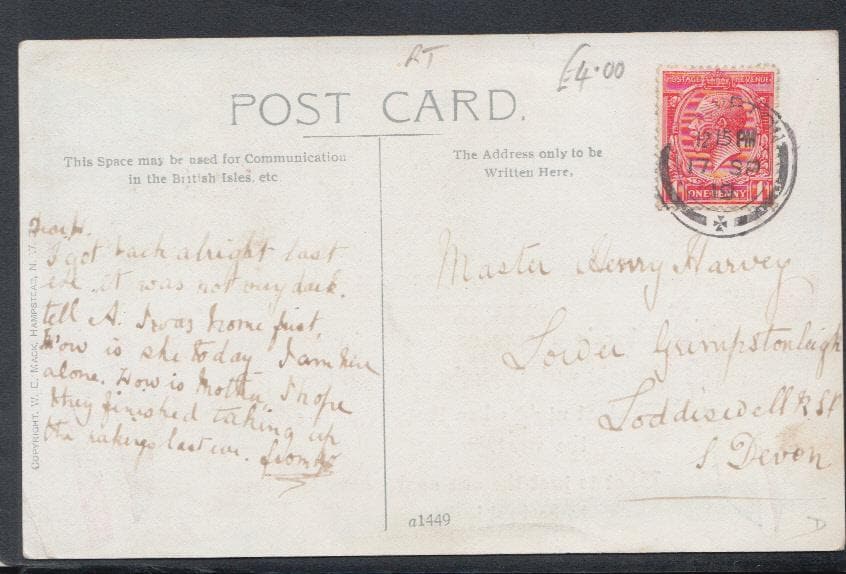 RT
£4.00
POST CARD.
This Space may be used for Communication
in the British Isles, etc
The Address only to be
Written Here,
POSTAGE REVENUE
12 15 PM
17 SP
ONE PENNY
Dear H.
I got back alright last
eve. it was not very dark.
tell A. I was home first,
How is she today I am here
alone. How is Mother, I hope
they finished taking up
the last eve. from
Master Henry Harvey
Lower Grimpstonleigh
Loddiswell R.S.O
S. Devon
COPYRIGHT, W. E. MACK, HAMPSTEAD, N. W.
a1449
D